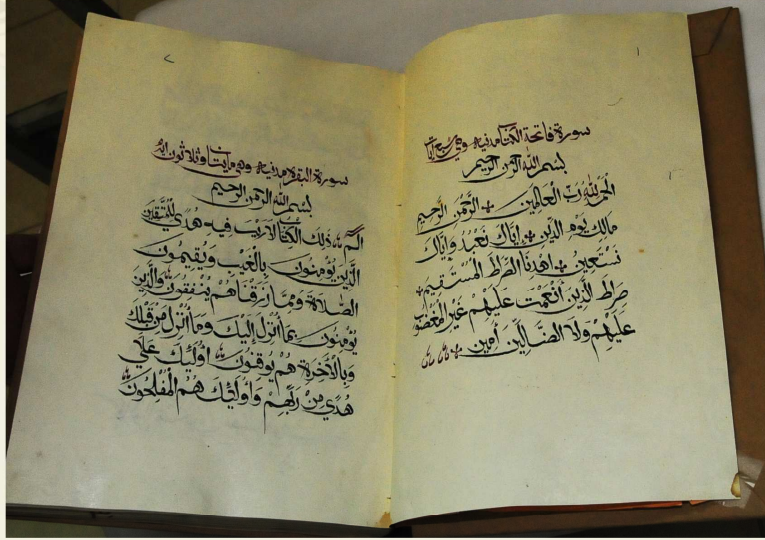 ١
سورة فاتحة الكتاب مدنيه وهي سبع آيات
بسم الله الرحمن الرحيم
الحمد لله رب العالمين الرحمن الرحيم
مالك يوم الدين إياك نعبد وإياك
نستعين اهدنا الصراط المستقيم
صراط الذين أنعمت عليهم غير المغضوب
عليهم ولا الضالين آمين
٢
سورة البقرة مدنيه وهي مايتان وثلاثون آية
بسم الله الرحمن الرحيم
الم ذلك الكتاب لا ريب فيه هدي للمتقين
الذين يؤمنون بالغيب ويقيمون
الصلاة ومما رزقناهم ينفقون والذين
يؤمنون بما أنزل إليك وما أنزل من قبلك
وبالآخرة هم يوقنون أولئك علي
هدي من ربهم وأولئك هم المفلحون